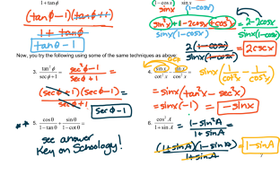 (tanϕ-1)(tanϕ+1)
1 + tanϕ
tanϕ-1
sin²x + 1 - 2cosx + cos²x
sinx(1-cosx)
= 2-2cosx
2(1-cosx)
sinx(1-cosx)
2cscx
Now, you try the following using some of the same techniques as above:
3. tan²ϕ / (secϕ+1) = (sec²ϕ-1) / (secϕ+1)
(secϕ+1)(secϕ-1) =
secϕ+1
secϕ-1
sinx (1/cos²x - 1/cos²x)
sinx (tan²x - sec²x)
sinx (-1) = -sinx
** 5. cosθ/(1-tanθ) + sinθ/(1-cotθ)
see answer
Key on Schoology!
6. cos²A / (1+sinA) = (1-sin²A) / (1+sinA)
(1+sinA)(1-sinA) =
1+sinA
1-sinA